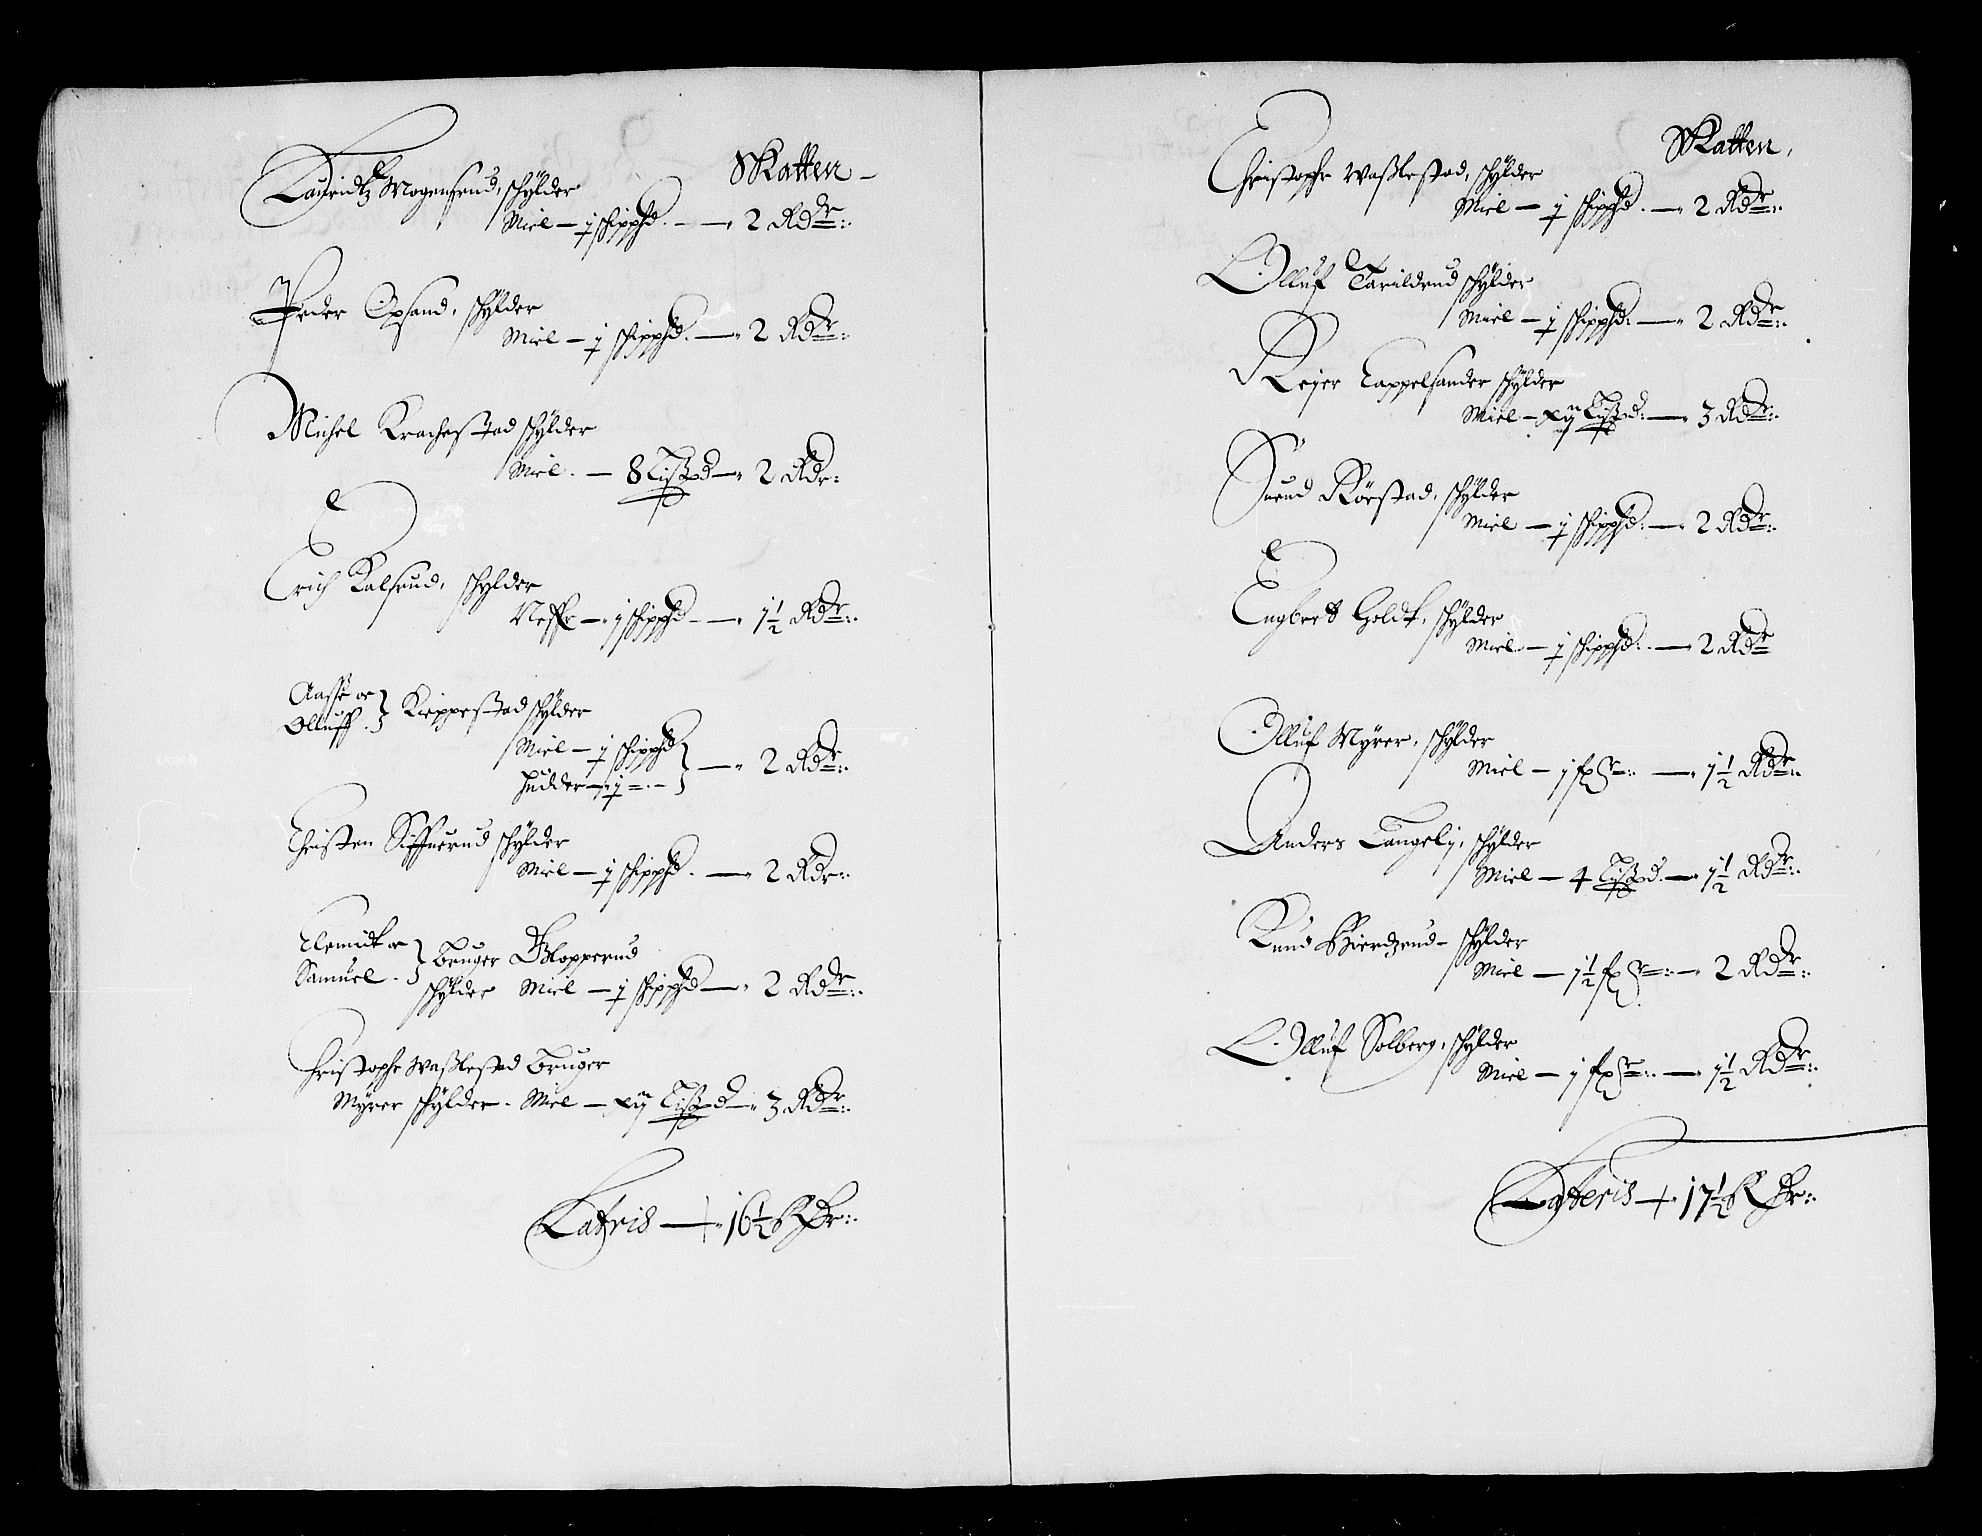 Skatten
Lauridtz Mogensrud, schylder
Miel – j schippd. – 2 Rdr:
Peder Opsand, schylder
Miel – j schippd. – 2 Rdr:
Michel Krachestad schylder
Miel. – 8 Lispd – 2 Rdr:
Erich Kalsrud, schylder
Neffr – j schippd – 1½ Rdr:
Aasse oc
Olluff } Kieppestad schylder
Miel – j schippd
hudder – j – } – 2 Rdr:
Christen Siffuerud schylder
Miel – j schippd. – 2 Rdr:
Clemidt oc
Samuel. } bruger Kloppерud
schylder Miel – j schippd – 2 Rdr:
Christophr Wasslestad bruger
Myrer schylder. Miel – xij Lispd – 3 Rdr:
Latris – 16½ Rdr:
Skatten,
Christophr Wasslestad, schylder
Miel – j schippd. – 2 Rdr:
Olluf Tarildrud schylder
Miel – j schippd: – 2 Rdr:
Rejer Tappelsander schylder
Miel – xij Lispd: – 3 Rdr:
Suend Rörstad, schylder
Miel – j schippd: – 2 Rdr:
Engbret Holdt, schylder
Miel – j schippd: – 2 Rdr
Olluf Myrer, schylder
Miel – j fxr: – 1½ Rdr:
Anders Tangelij, schylder
Miel – 4 Lispd. – 1½ Rdr:
Knud Bierdzrud – schylder
Miel – 1½ fxr: – 2 Rdr:
Olluf Solberg, schylder
Miel – j fxr: – 1½ Rdr:
Lateris – 17½ Rdr: